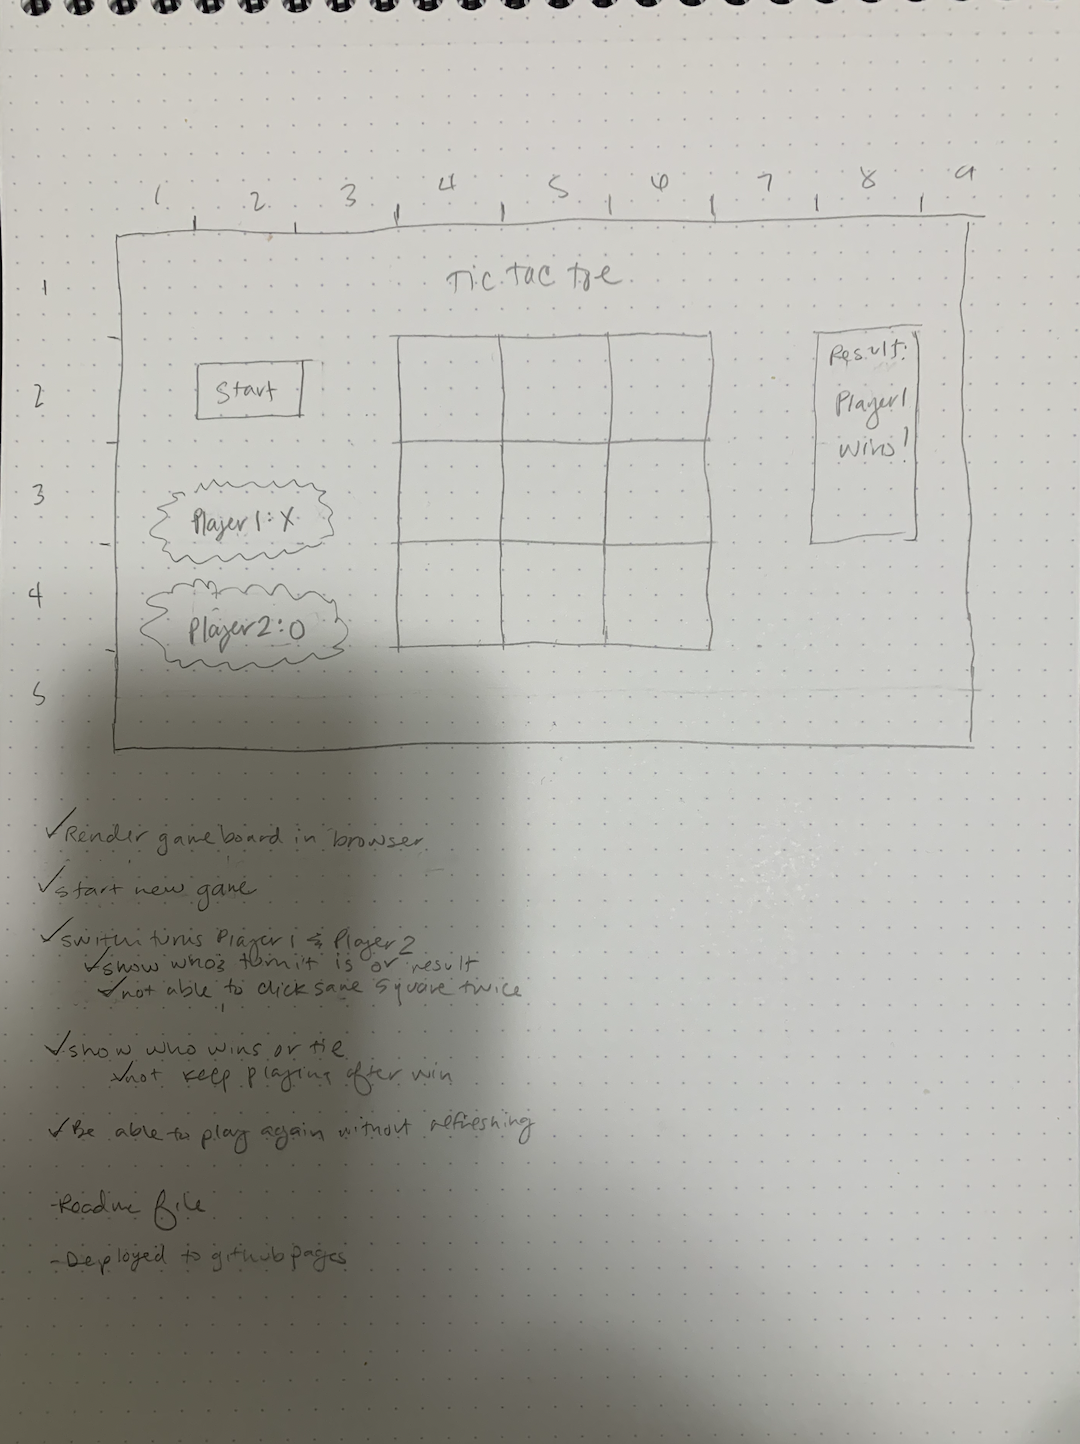 1 2 3 4 5 6 7 8 9
1
Tic tac toe
2
Start
Result:
Player 1
wins!
3
Player 1: X
4
Player 2: O
5
✓Render game board in browser
✓start new game
✓switch turns Player 1 & Player 2
✓show who's turn it is or result
✓not able to click same square twice
✓show who wins or tie
✓not keep playing after win
✓Be able to play again without refreshing
-Readme file
-Deployed to github pages